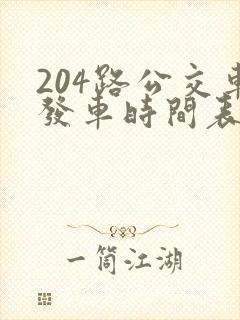 204路公交車
發車時間表
一筒江湖